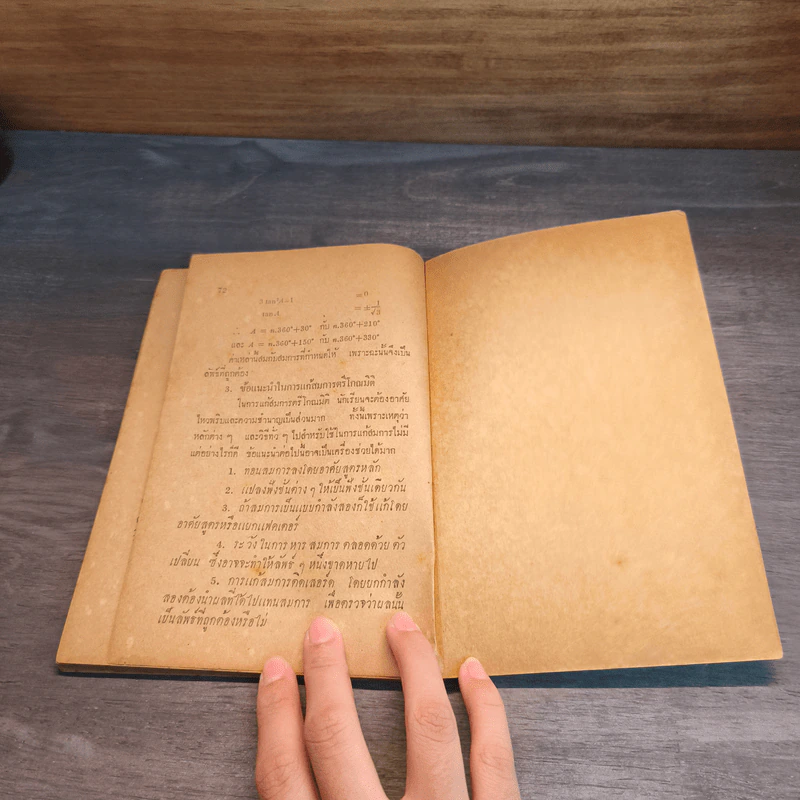 72
3 tan²A−1 = 0
tan A = ±1/√3
∴ A = n.360°+30° กับ n.360°+210°
และ A = n.360°+150° กับ n.360°+330°
ค่าเหล่านี้สมกับสมการที่กำหนดให้ เพราะฉะนั้นจึงเป็น
ลัพธ์ที่ถูกต้อง
3. ข้อแนะนำในการแก้สมการตรีโกณมิติ
ในการแก้สมการตรีโกณมิติ นักเรียนจะต้องอาศัย
ไหวพริบและความชำนาญเป็นส่วนมาก ทั้งนี้เพราะเหตุว่า
หลักต่าง ๆ และวิธีทั่ว ๆ ไปสำหรับใช้ในการแก้สมการไม่มี
แต่อย่างไรก็ดี ข้อแนะนำต่อไปนี้อาจเป็นเครื่องช่วยได้มาก
1. ทอนสมการลงโดยอาศัยสูตรหลัก
2. แปลงฟังชันต่าง ๆ ให้เป็นฟังชันเดียวกัน
3. ถ้าสมการเป็นแบบกำลังสองก็ใช้แก้โดย
อาศัยสูตรหรือแยกแฟคเตอร์
4. ระวังในการหารสมการตลอดด้วยตัว
เปลี่ยน ซึ่งอาจจะทำให้ลัพธ์ ๆ หนึ่งขาดหายไป
5. การแก้สมการติดเสอร์ด โดยยกกำลัง
สองต้องนำผลที่ได้ไปแทนสมการ เพื่อตรวจว่าผลนั้น
เป็นลัพธ์ที่ถูกต้องหรือไม่